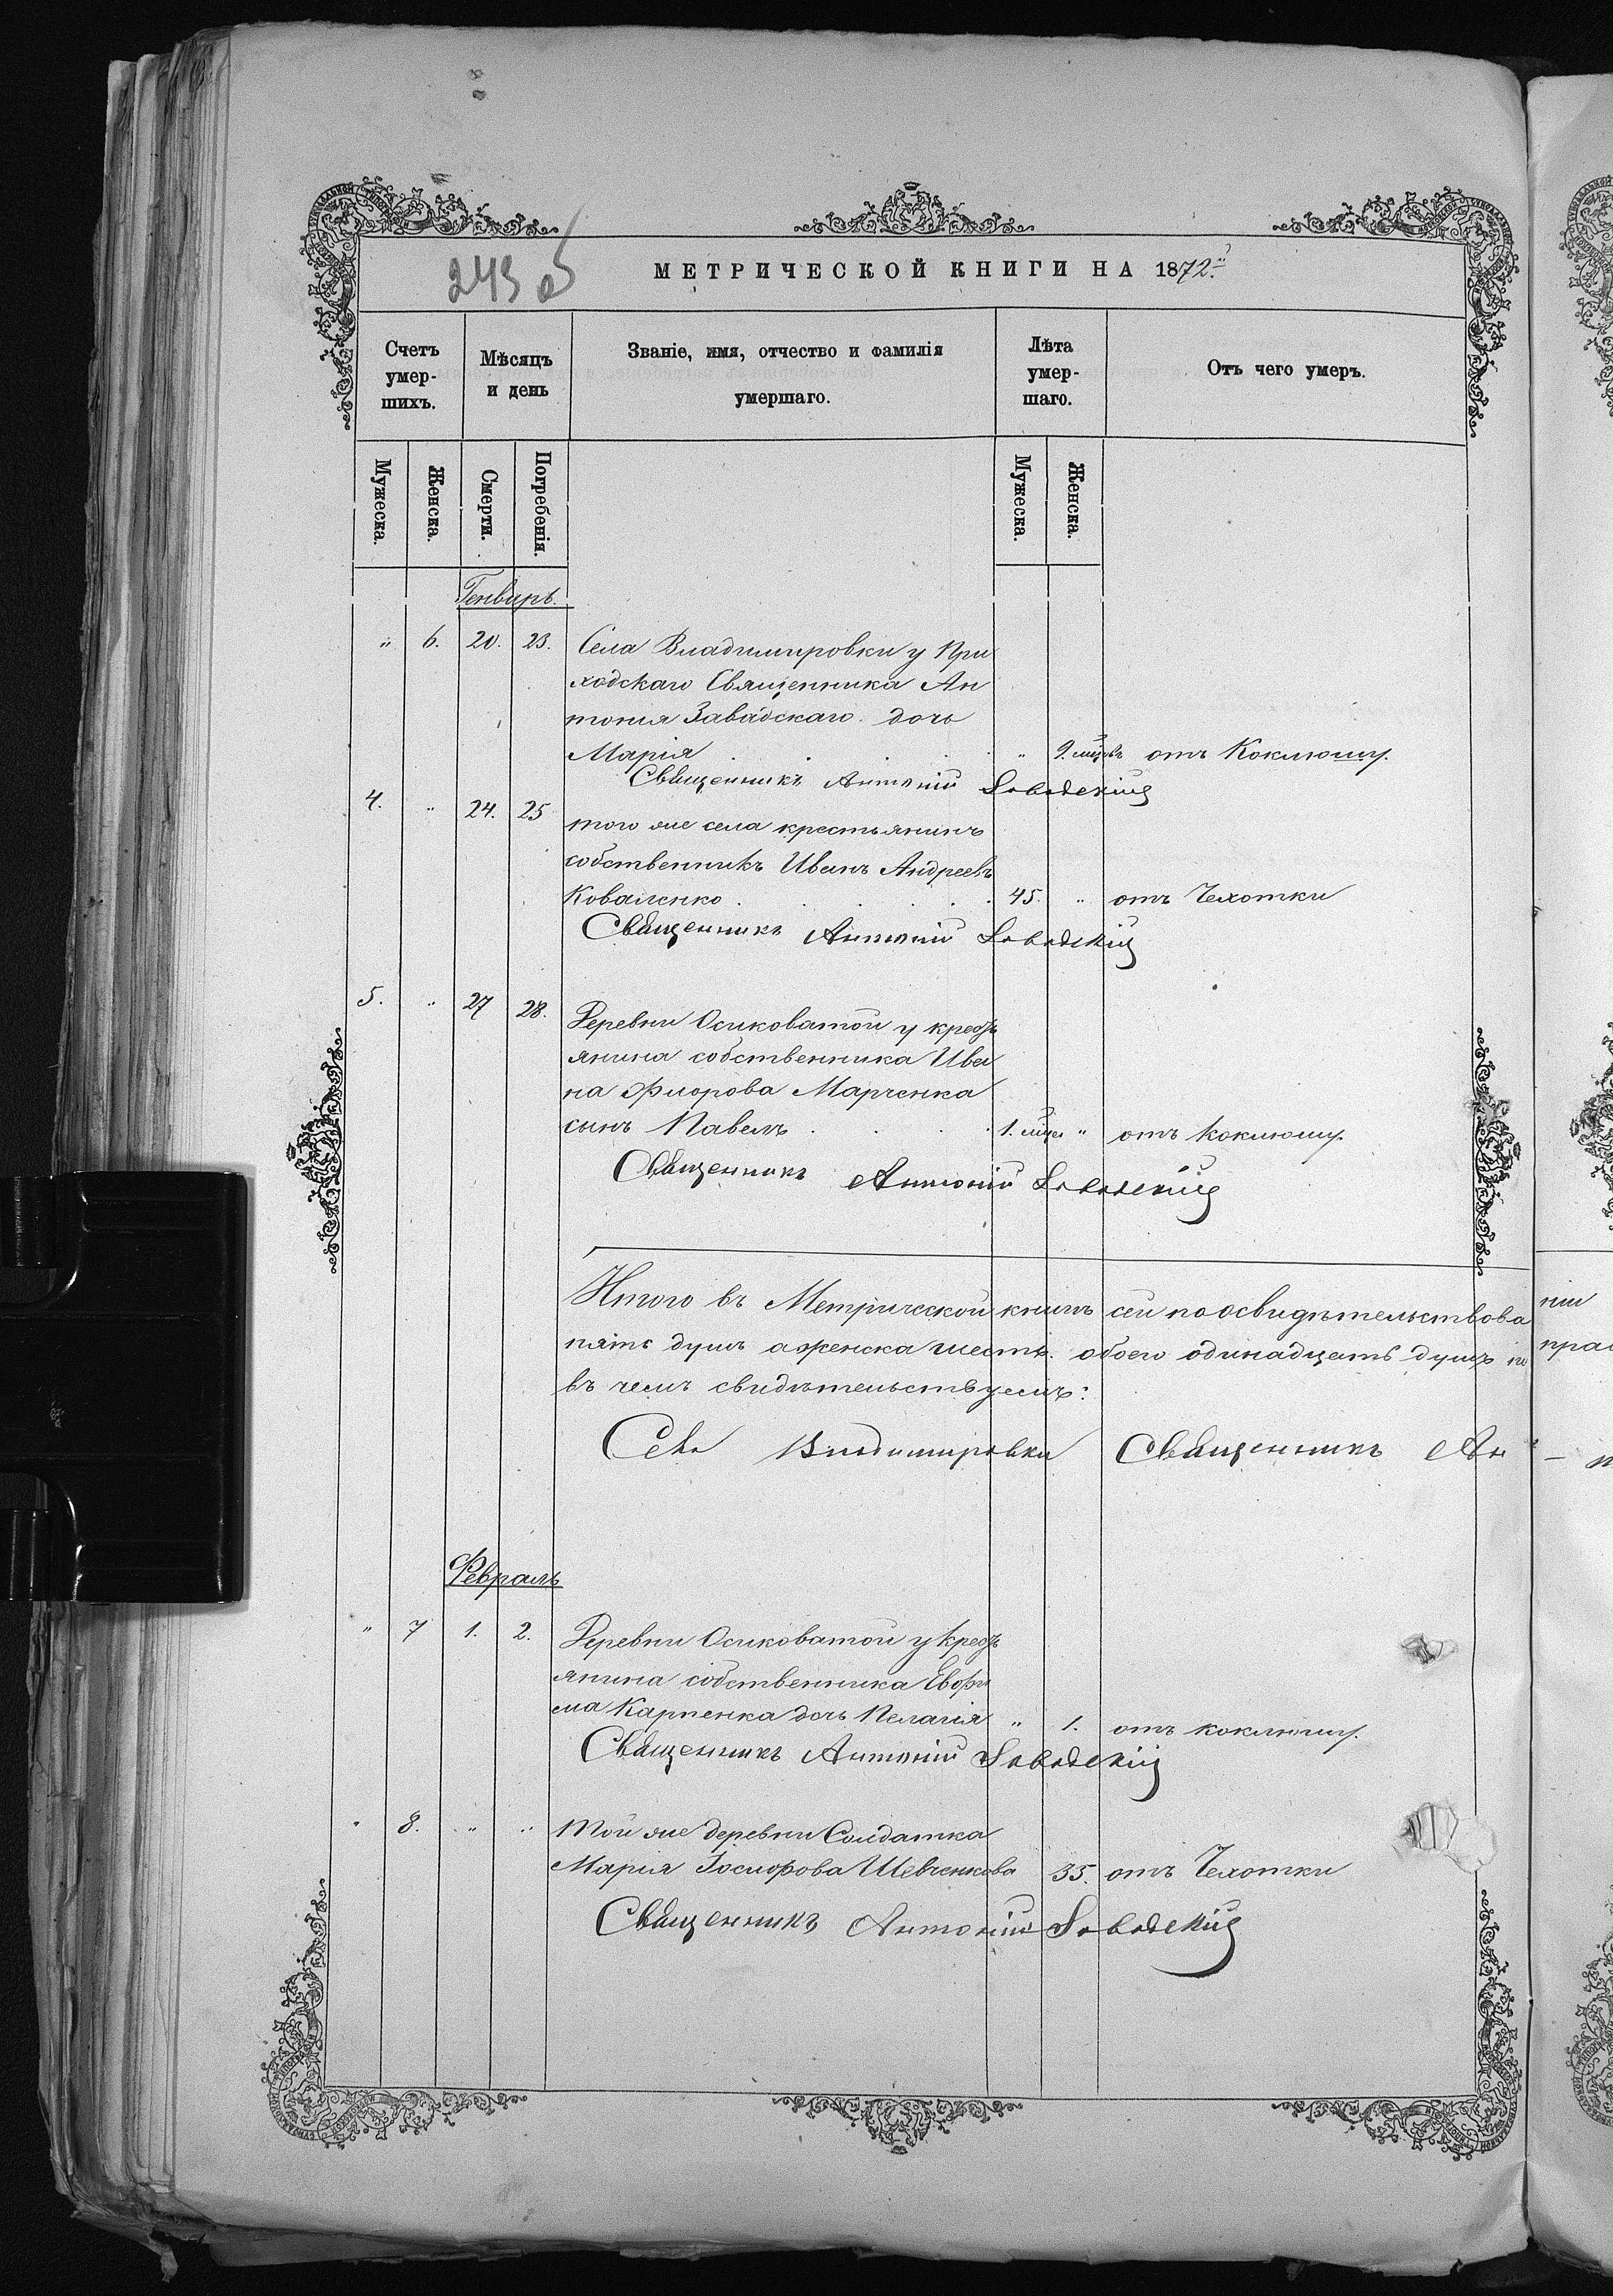 243 об
МЕТРИЧЕСКОЙ КНИГИ НА 1872.
Счетъ умер-шихъ. Мѣсяцъ и день Званіе, имя, отчество и фамилія умершаго. Лѣта умер-шаго. Отъ чего умеръ.
Мужеска. Женска. Смерти. Погребенія. Мужеска. Женска.
Генварь.
" 6. 20. 23. Села Владимировки у При
ходскаго Священника Ан
тонія Завадскаго дочь
Марія " 9. мцовъ отъ Коклюшу.
Священникъ Антоній Заводскій
4. " 24. 25 того же села крестьянинъ
собственникъ Иванъ Андреевъ
Коваленко 45. " отъ Чехотки
Священникъ Антоній Заводскій
5. " 27 28. Деревни Осиковатой у крест
янина собственника Ива
на Флорова Марченка
сынъ Павелъ 1. " отъ коклюшу.
Священникъ Антоній Заводскій
Итого въ Метрической книгѣ сей по освидѣтельствова нии
пять душъ а женска шесть. обоего одинадцать душъ
въ чемъ свидѣтельствуемъ:
Села Владимировки Священникъ Ан
Февраль
" 7 1. 2. Деревни Осиковатой у крест
янина собственника Евфи
ма Карпенка дочь Пелагія " 1. отъ коклюшу.
Священникъ Антоній Заводскій
" 8. " " Той же деревни Солдатка
Марія Іосифова Шевченкова 35. отъ Чехотки
Священникъ Антоній Заводскій